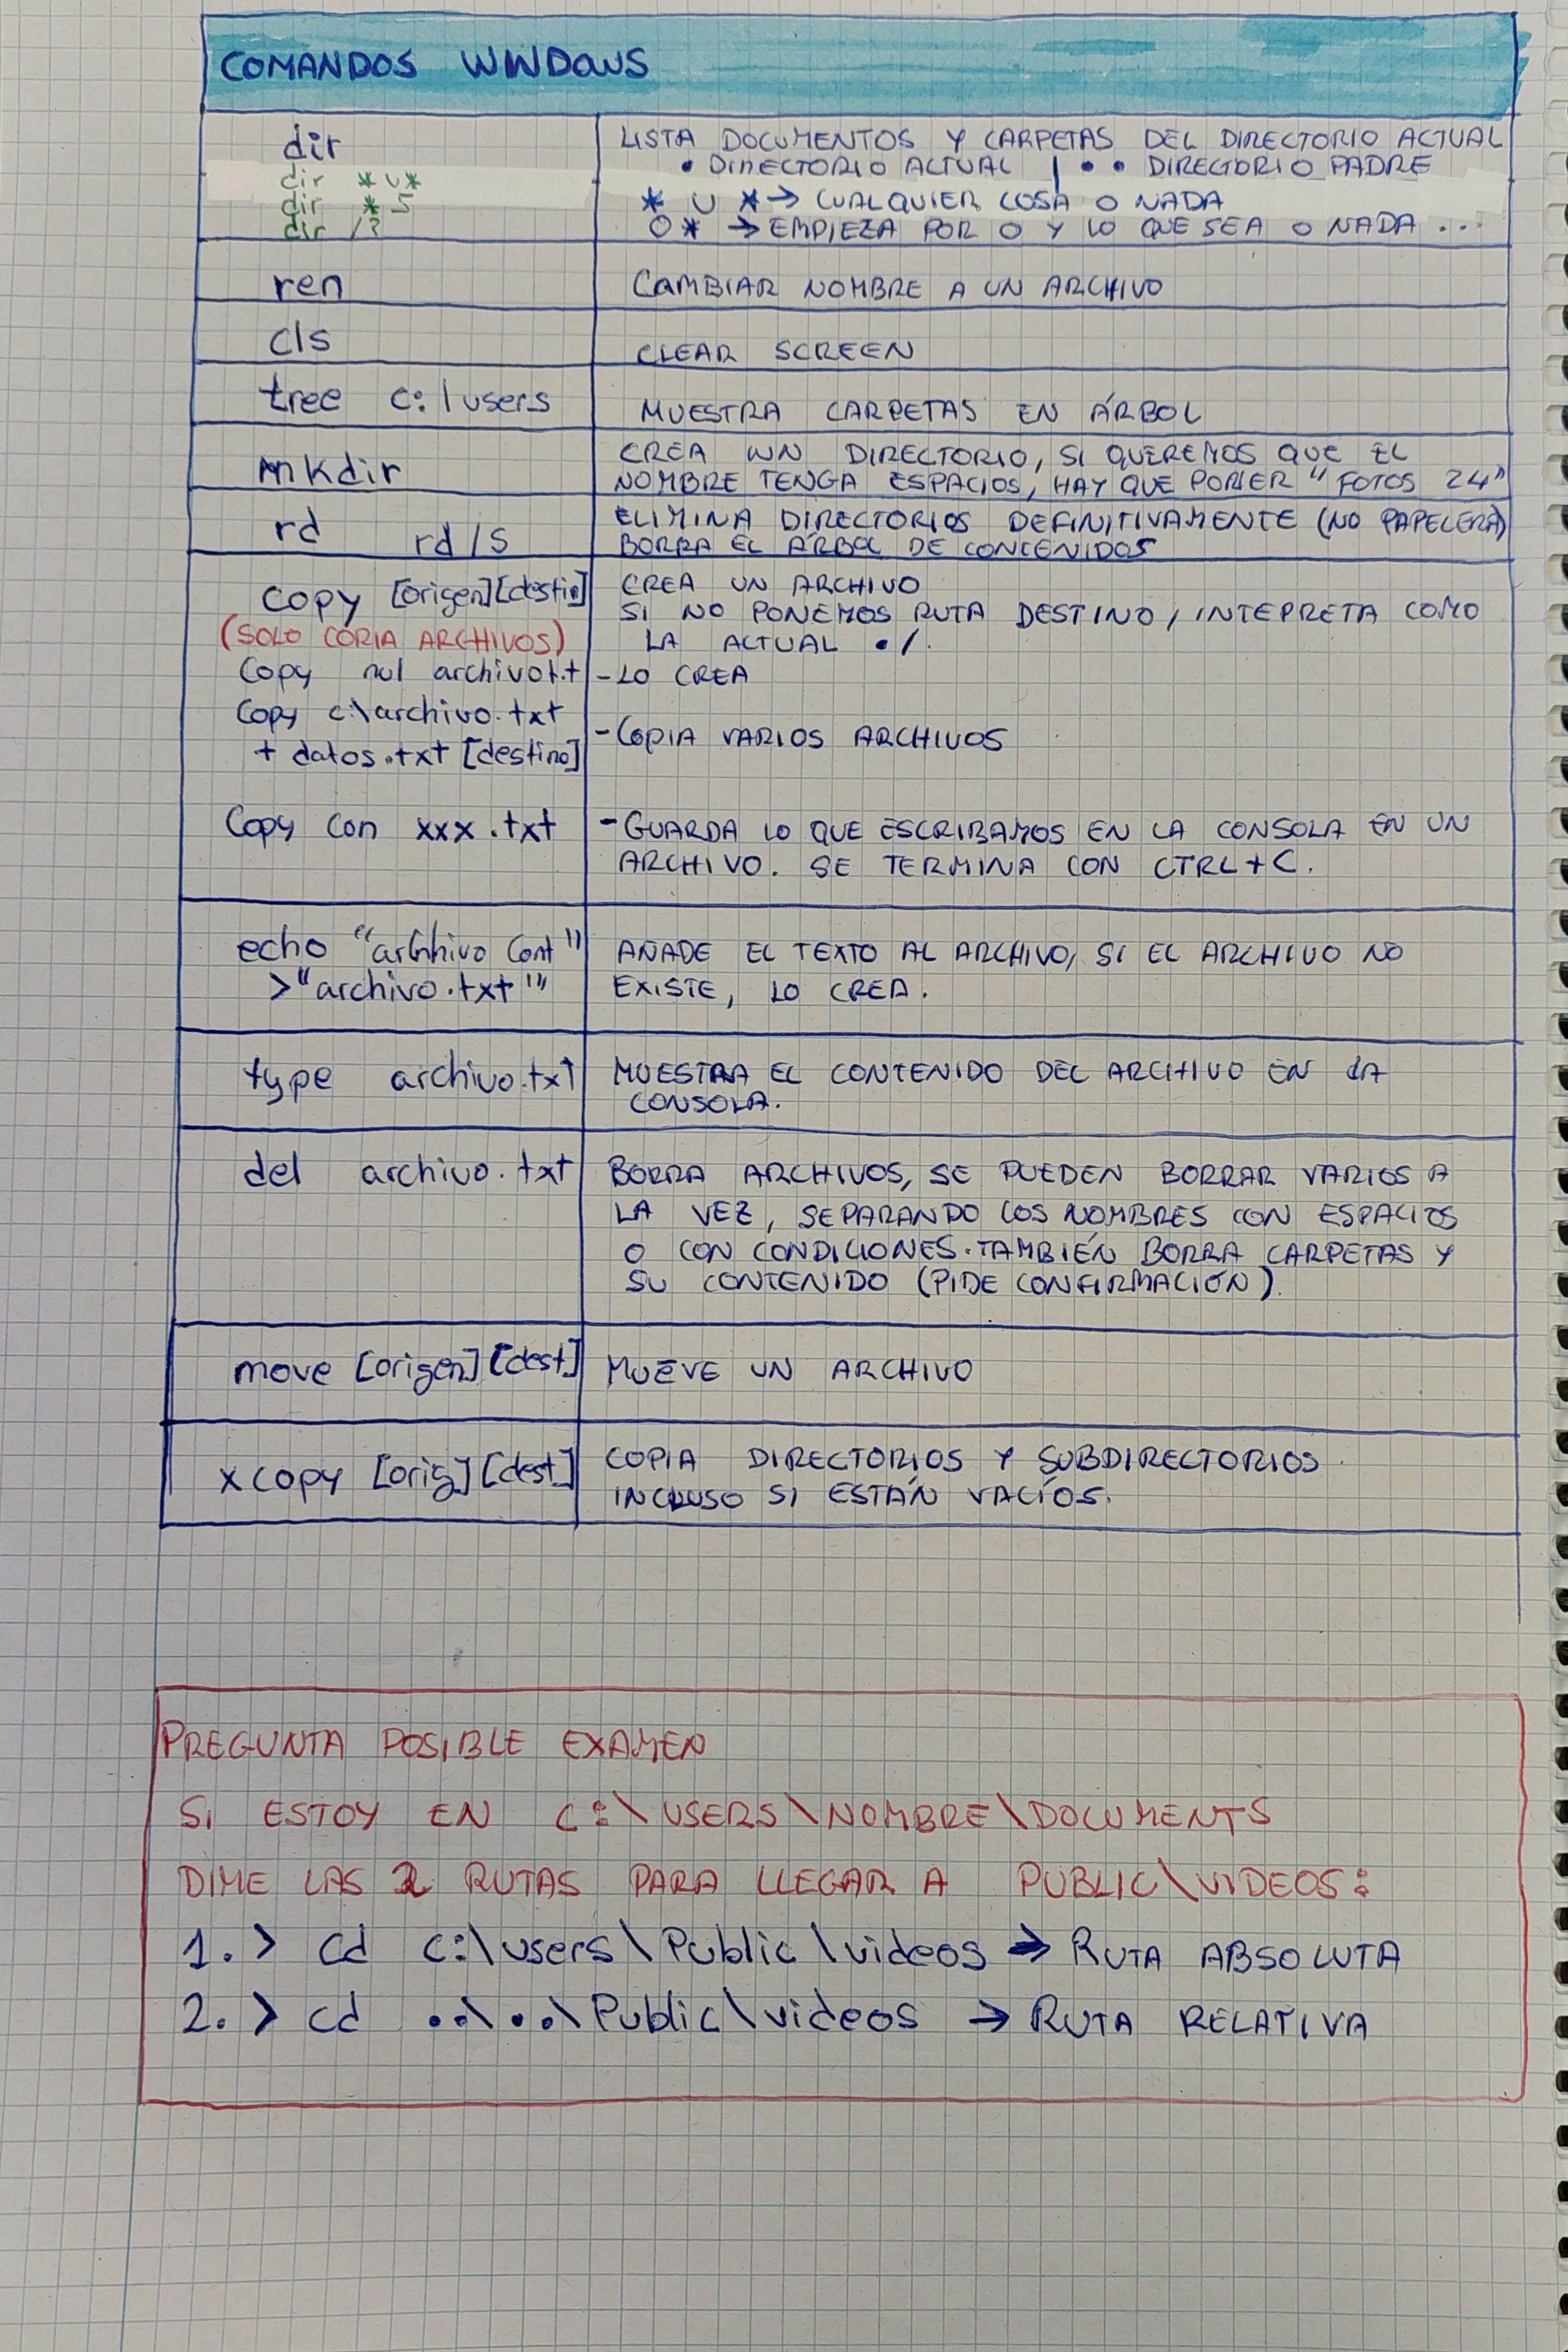 COMANDOS WINDOWS
dir
LISTA DOCUMENTOS Y CARPETAS DEL DIRECTORIO ACTUAL
• DIRECTORIO ACTUAL | • • DIRECTORIO PADRE
dir *U*
* U * → CUALQUIER COSA O NADA
dir *5
O* → EMPIEZA POR O Y LO QUE SEA O NADA ...
dir /?
ren
CAMBIAR NOMBRE A UN ARCHIVO
cls
CLEAR SCREEN
tree c:\users
MUESTRA CARPETAS EN ÁRBOL
mkdir
CREA UN DIRECTORIO, SI QUEREMOS QUE EL
NOMBRE TENGA ESPACIOS, HAY QUE PONER "FOTOS 24"
rd rd/s
ELIMINA DIRECTORIOS DEFINITIVAMENTE (NO PAPELERA)
BORRA EL ÁRBOL DE CONTENIDOS
copy [origen][destin]
(SOLO COPIA ARCHIVOS)
CREA UN ARCHIVO
SI NO PONEMOS RUTA DESTINO, INTEPRETA COMO
LA ACTUAL •/.
Copy nul archivot.t
- LO CREA
Copy c:\archivo.txt
+ datos.txt [destino]
- COPIA VARIOS ARCHIVOS
Copy con xxx.txt
- GUARDA LO QUE ESCRIBAMOS EN LA CONSOLA EN UN
ARCHIVO. SE TERMINA CON CTRL+C.
echo "archivo Cont"
>"archivo.txt"
AÑADE EL TEXTO AL ARCHIVO, SI EL ARCHIVO NO
EXISTE, LO CREA.
type archivo.txt
MUESTRA EL CONTENIDO DEL ARCHIVO EN LA
CONSOLA.
del archivo.txt
BORRA ARCHIVOS, SE PUEDEN BORRAR VARIOS A
LA VEZ, SEPARANDO LOS NOMBRES CON ESPACIOS
O CON CONDICIONES. TAMBIÉN BORRA CARPETAS Y
SU CONTENIDO (PIDE CONFIRMACIÓN).
move [origen] [dest]
MUEVE UN ARCHIVO
xcopy [orig] [dest]
COPIA DIRECTORIOS Y SUBDIRECTORIOS
INCLUSO SI ESTÁN VACÍOS.
PREGUNTA POSIBLE EXAMEN
SI ESTOY EN C:\USERS\NOMBRE\DOCUMENTS
DIME LAS 2 RUTAS PARA LLEGAR A PUBLIC\VIDEOS:
1. > cd c:\users\Public\videos → RUTA ABSOLUTA
2. > cd ..\..\Public\videos → RUTA RELATIVA